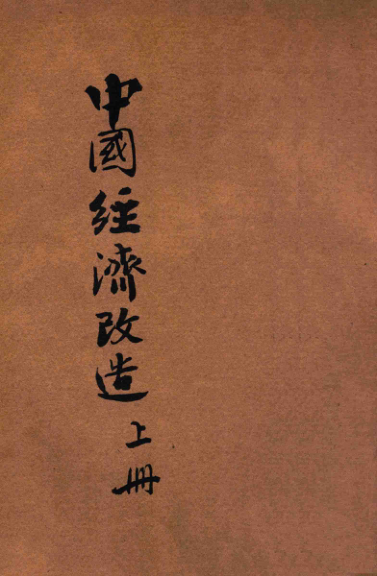 中國經濟改造
上册